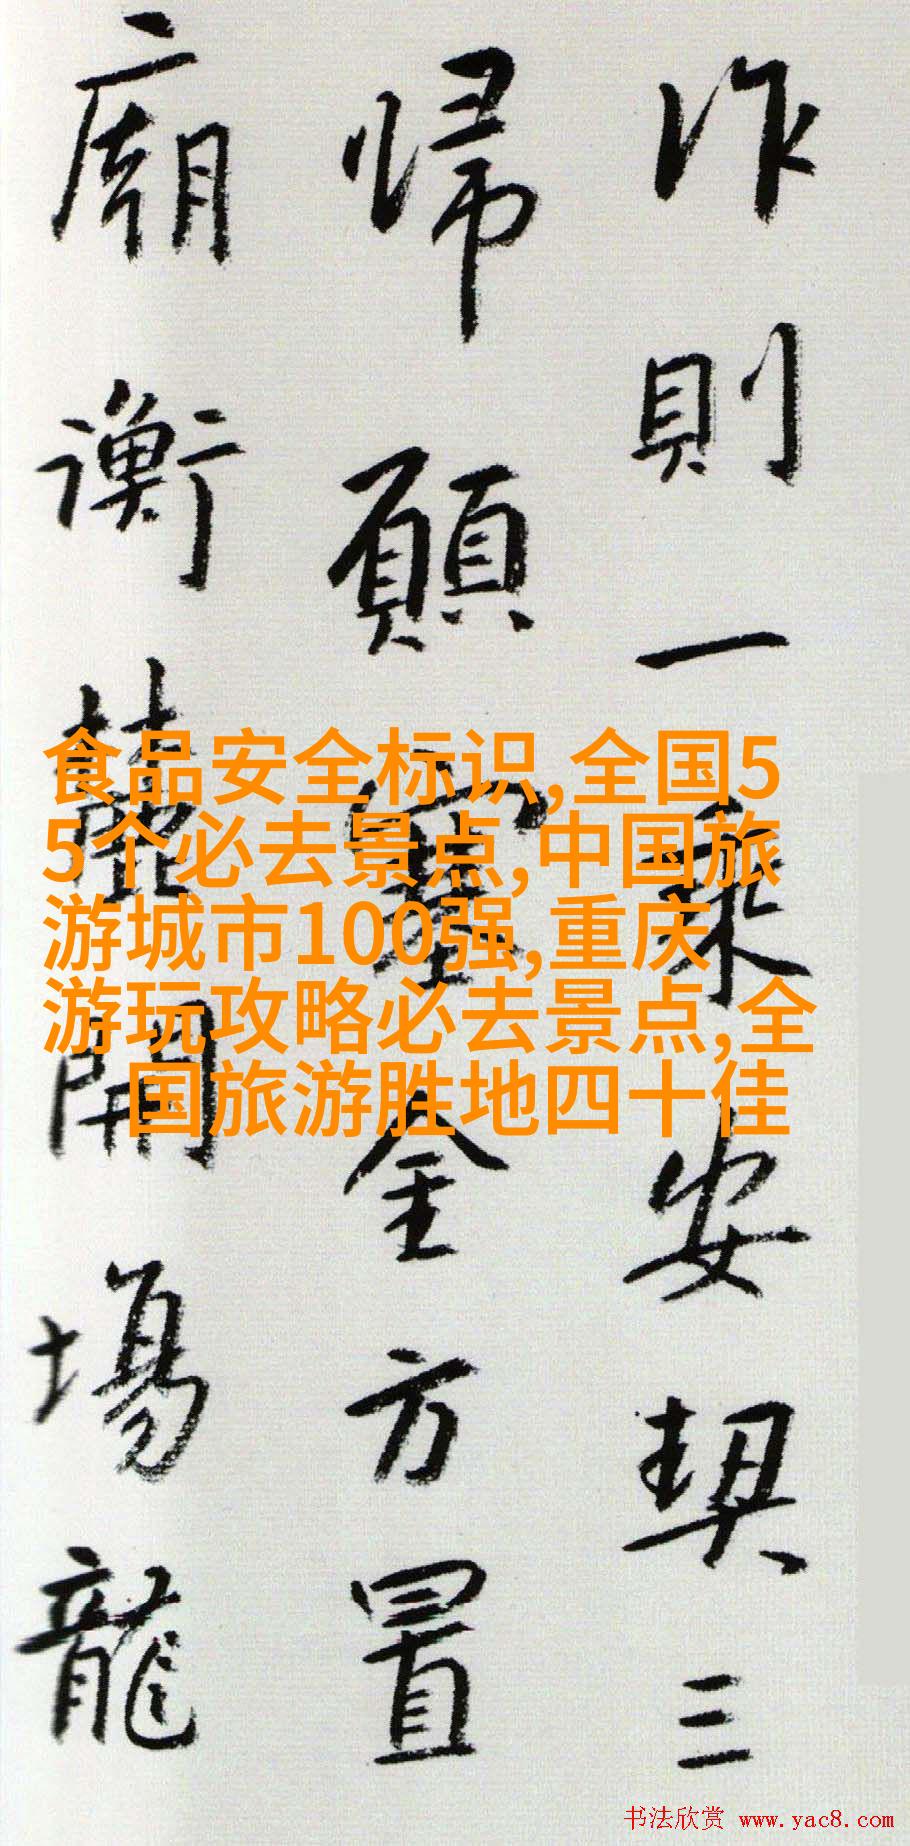 作則一乘安契三
歸願塞全方置
廟衡麓開場龍
食品安全标识,全国5
5个必去景点,中国旅
游城市100强,重庆
游玩攻略必去景点,全
国旅游胜地四十佳
书法欣赏 www.yac8.com